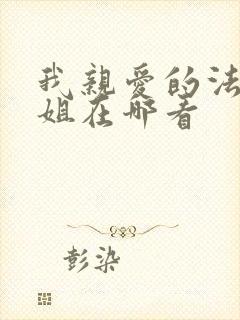 我親愛的法
姐在哪看
彭染